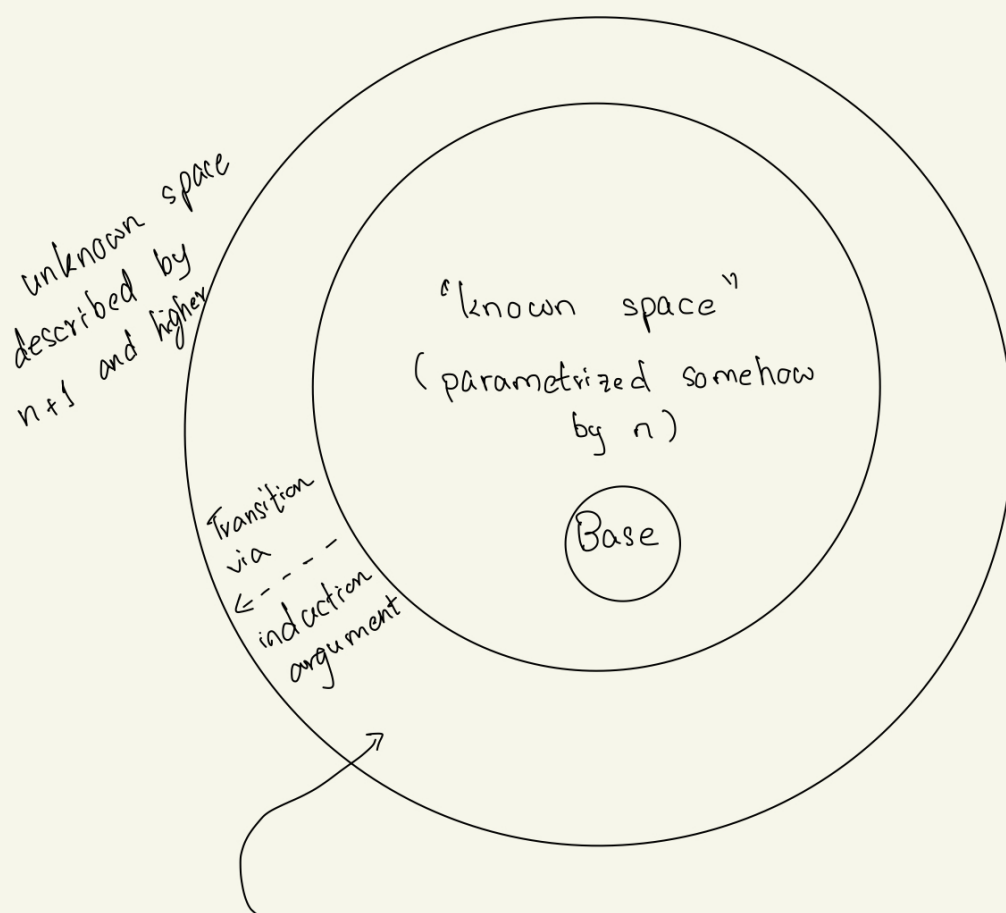 unknown space
described by
n+1 and higher
"known space"
(parametrized somehow
by n)
Base
Transition
via
induction
argument